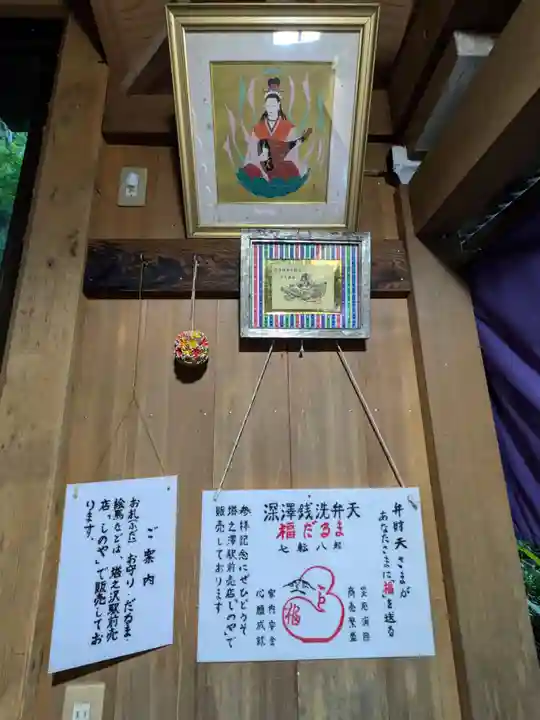 深澤銭洗弁天
福だるま
七転八起
弁財天さまが
あなたさまに「福」を送る
災厄消除
商売繁盛
家内安全
心願成就
福
参拝記念にぜひどうぞ
塔之澤駅前売店「しのや」で
販売しております
ご案内
お札(ふだ)お守り・だるま・
絵馬などは、塔之沢駅前売
店「しのや」で販売してお
ります。